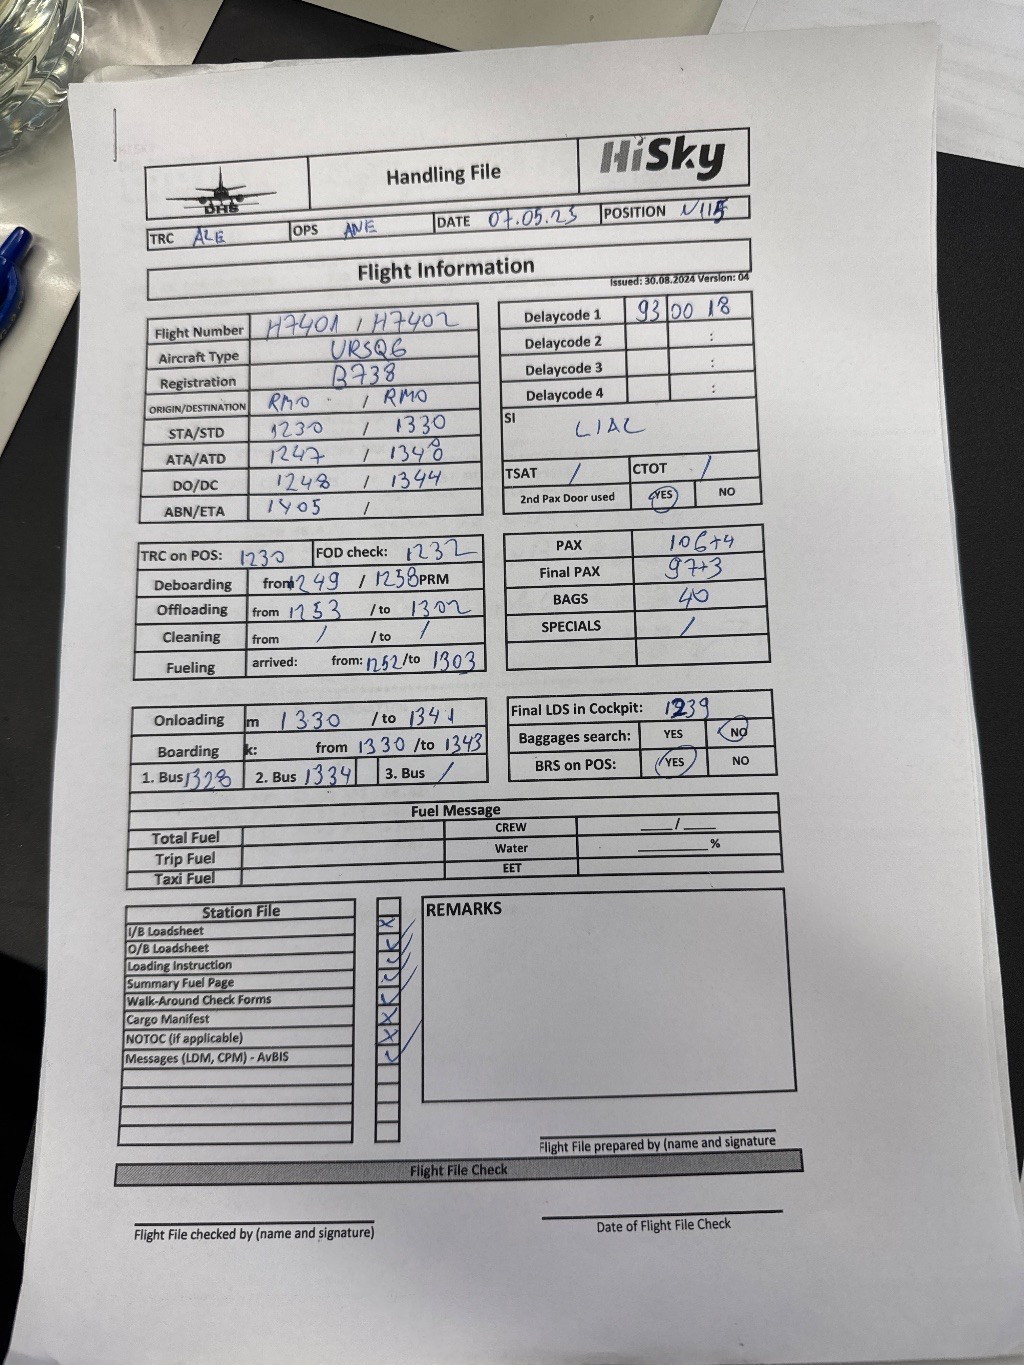 DHS
Handling File
HiSky
TRC ALE OPS ANE DATE 07.05.25 POSITION N115
Flight Information
Issued: 30.08.2024 Version: 04
Flight Number H7401 / H7402
Aircraft Type URSQG
Registration B738
ORIGIN/DESTINATION RMO / RMO
STA/STD 1230 / 1330
ATA/ATD 1247 / 1348
DO/DC 1248 / 1344
ABN/ETA 1405 /
Delaycode 1 93 00 18
Delaycode 2 :
Delaycode 3 :
Delaycode 4 :
SI
LIAL
TSAT / CTOT /
2nd Pax Door used YES NO
TRC on POS: 1230 FOD check: 1232
Deboarding from 1249 / 1258 PRM
Offloading from 1253 / to 1302
Cleaning from / / to /
Fueling arrived: from: 1252 /to 1303
PAX 106+4
Final PAX 97+3
BAGS 40
SPECIALS /
Onloading m 1330 / to 1341
Boarding k: from 1330 /to 1343
1. Bus 1328 2. Bus 1334 3. Bus /
Final LDS in Cockpit: 1239
Baggages search: YES NO
BRS on POS: YES NO
Fuel Message
Total Fuel CREW ___/___
Trip Fuel Water ______%
Taxi Fuel EET
Station File
I/B Loadsheet X
O/B Loadsheet ✓
Loading Instruction ✓
Summary Fuel Page ✓
Walk-Around Check Forms ✓
Cargo Manifest X
NOTOC (if applicable) X
Messages (LDM, CPM) - AvBIS ✓
REMARKS
Flight File prepared by (name and signature
Flight File Check
Flight File checked by (name and signature)
Date of Flight File Check